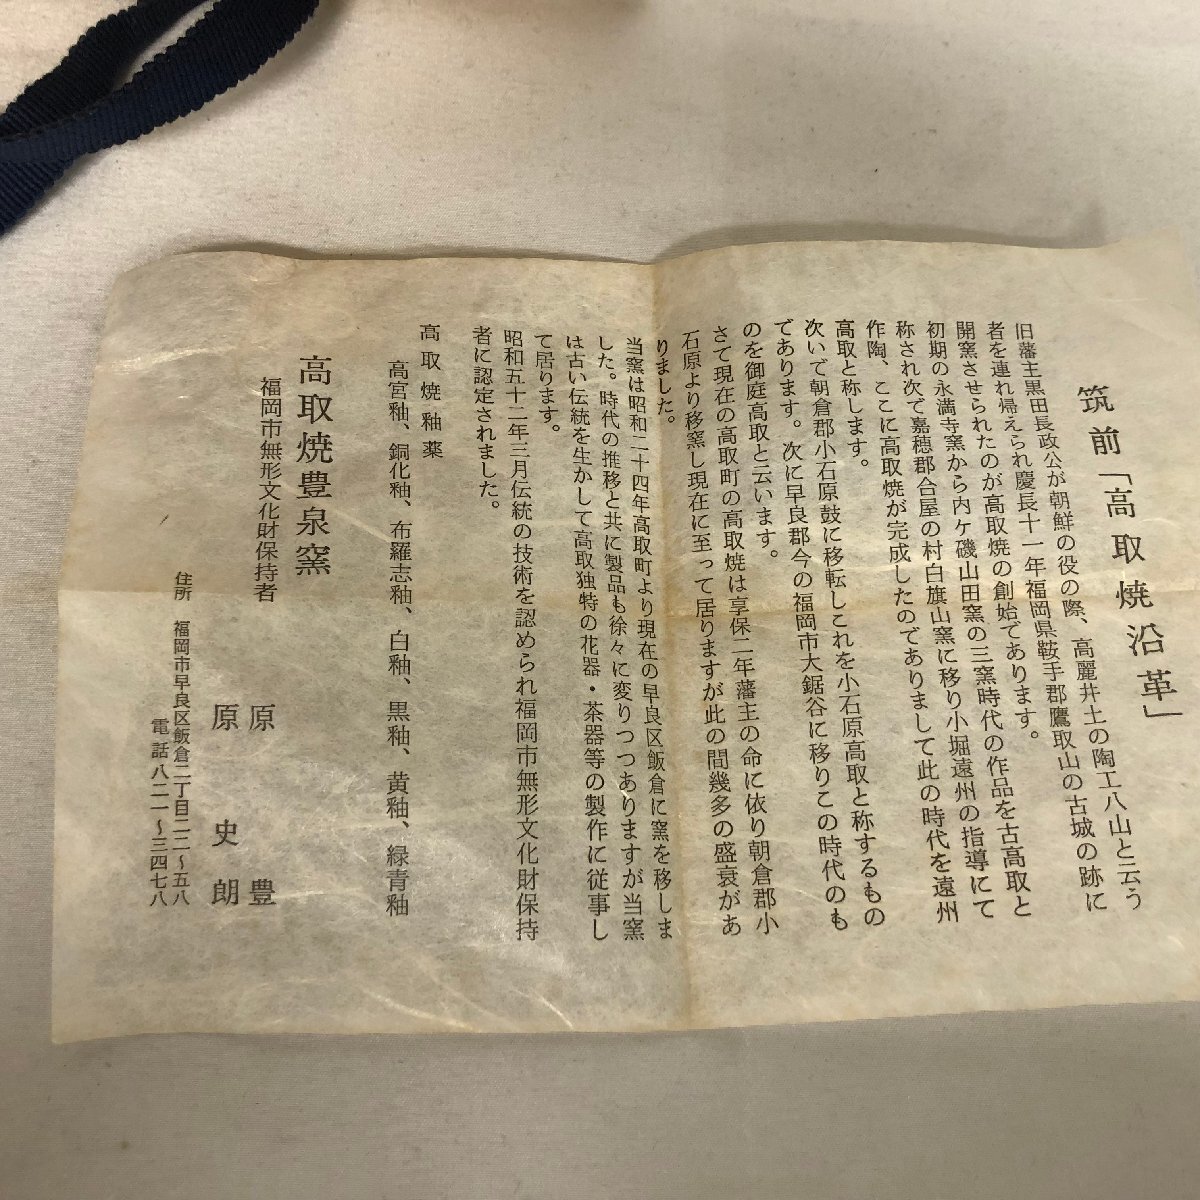 筑前「高取焼沿革」
旧藩主黒田長政公が朝鮮の役の際、高麗井土の陶工八山と云う
者を連れ帰えられ慶長十一年福岡県鞍手郡鷹取山の古城の跡に
開窯させられたのが高取焼の創始であります。
初期の永満寺窯から内ケ磯山田窯の三窯時代の作品を古高取と
称され次で嘉穂郡合屋の村白旗山窯に移り小堀遠州の指導にて
作陶、ここに高取焼が完成したのでありまして此の時代を遠州
高取と称します。
次いで朝倉郡小石原鼓に移転しこれを小石原高取と称するもの
であります。次に早良郡今の福岡市大鋸谷に移りこの時代のも
のを御庭高取と云います。
さて現在の高取町の高取焼は享保二年藩主の命に依り朝倉郡小
石原より移窯し現在に至って居りますが此の間幾多の盛衰があ
りました。
当窯は昭和二十四年高取町より現在の早良区飯倉に窯を移しま
した。時代の推移と共に製品も徐々に変りつつありますが当窯
は古い伝統を生かして高取独特の花器・茶器等の製作に従事し
て居ります。
昭和五十二年三月伝統の技術を認められ福岡市無形文化財保持
者に認定されました。
高取焼釉薬
高宮釉、銅化釉、布羅志釉、白釉、黒釉、黄釉、緑青釉
高取焼豊泉窯
福岡市無形文化財保持者
原 豊
原 史朗
住所 福岡市早良区飯倉二丁目二二〜五八
電話八二一〜三四七八